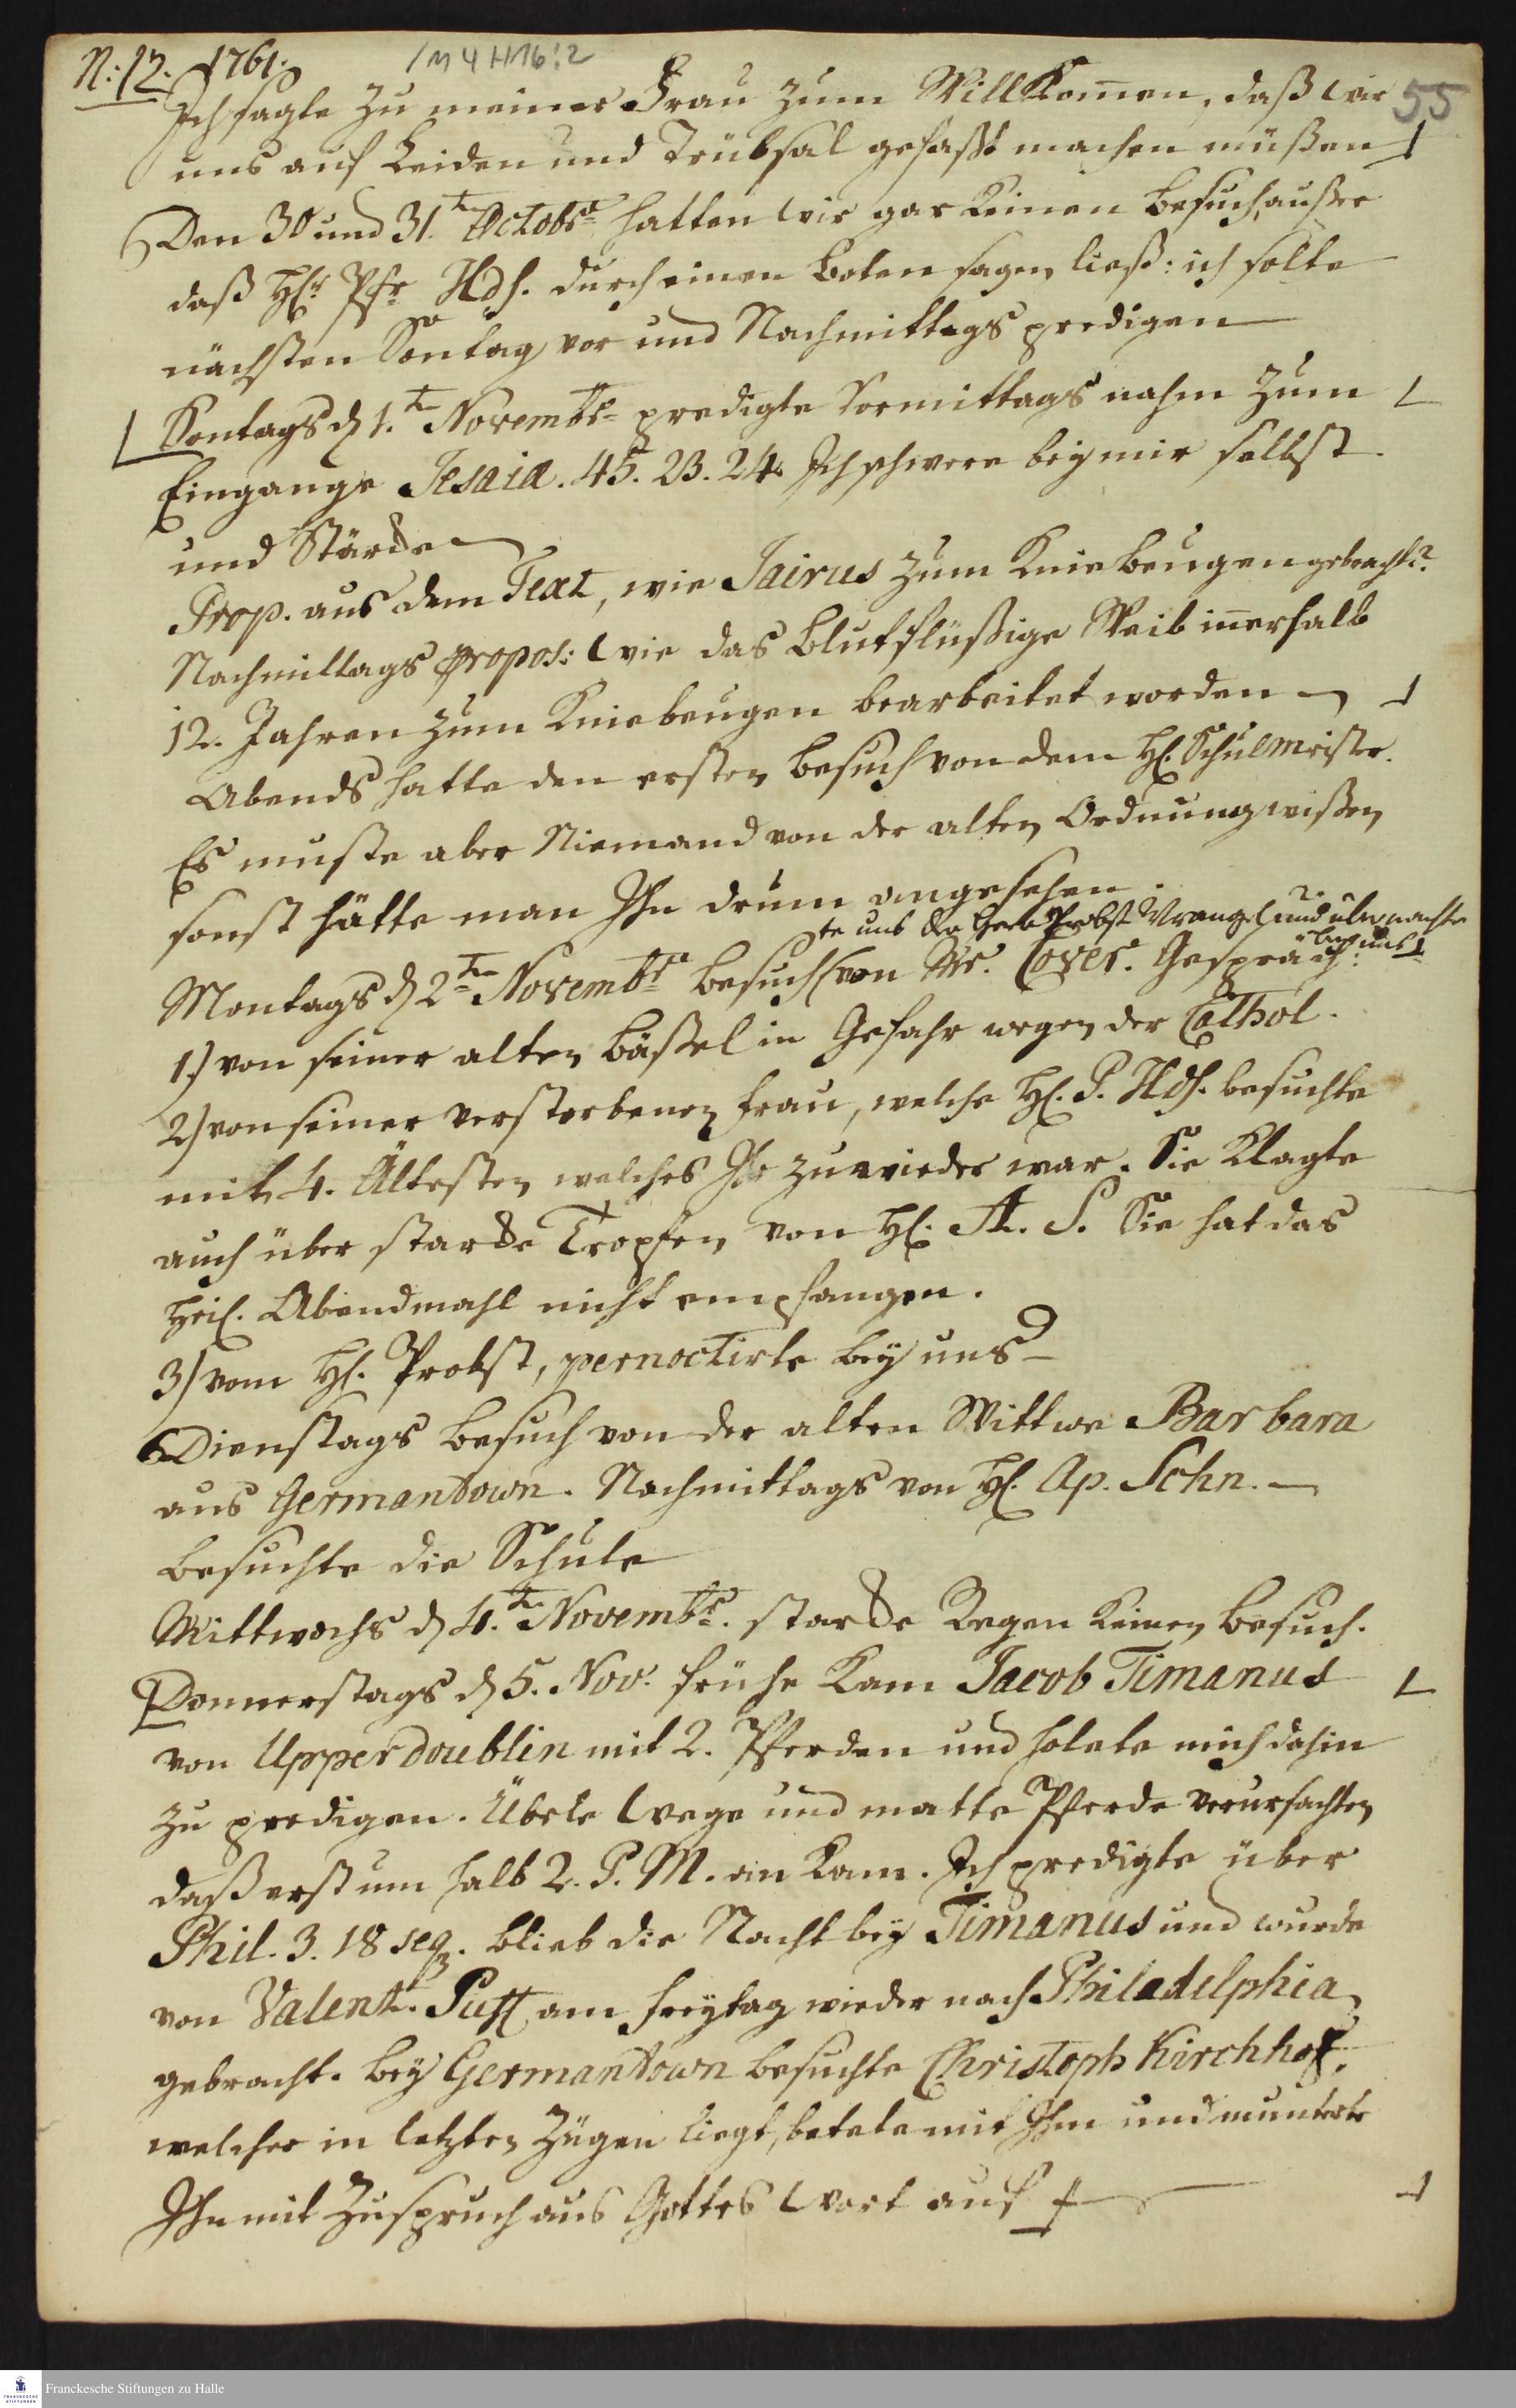 N: 12. 1761.
1 M 4 H 16:2
55
Ich sagte zu meiner Frau zum Willkom̄en, daß wir
uns auf Leiden und Trübsal gefaßt machen müßen
Den 30 und 31.t Octobr hatten wir gar keinen Besuch, außer
daß H. Pfr Hdf. durch einen Boten sagen ließ: ich solte
nächsten Sontag vor und Nachmittags predigen
Sontags d 1.t Novembr predigte Vormittags nahm zum
Eingange Jesaia. 45. 23. 24. Ich schwere bey mir selbst.
und Stärcke
Prop. aus dem Text, wie Jairus zum Kniebeugen gebracht?
Nachmittags propos: wie das Blutflüßige Weib in̄erhalb
12. Jahren zum Kniebeugen bearbeitet worden
Abends hatte den ersten Besuch von dem H. Schulmeister.
Es muste aber Niemand von der alten Ordnung wißen
sonst hätte man Ihn drum angesehen.
te uns der Herr Probst Wrangel und
bey uns
Montags d 2t Novembr Besuch von Mr. Cover. Gespräch:
1.) von seiner alten Bäßel in Gefahr wegen der Cathol.
2) von seiner verstorbenen Frau, welche H. P. Hdf. besuchte
mit 4. Ältesten welches Ihr zuwieder war. Sie klagte
auch über starcke Tropfen von H. A. S. Sie hat das
Heil. Abendmahl nicht empfangen.
3) vom H. Probst, pernoctirte bey uns
Dienstags Besuch von der alten Wittwe Barbara
aus Germantown. Nachmittags von H. Ap. Schn.
besuchte die Schule
Mittwochs d 4.t Novembr. starcke Regen keinen Besuch.
Donnerstags d 5. Nov. frühe kam Jacob Timanus
von Upperdoublin mit 2. Pferden und holete mich dahin
zu predigen. Übele Wege und matte Pferde verursachten
daß erst um halb 2. P. M. an kam. Ich predigte über
Phil. 3. 18 seq. blieb die Nacht bey Timanus und wurde
von Valent. Puff am Freytag wieder nach Philadelphia
gebracht. Bey Germantown besuchte Christoph Kirchhof,
welcher in letzten Zügen liegt, betete mit Ihm und munterte
Ihn mit Zuspruch aus Gottes Wort auf
Franckesche Stiftungen zu Halle